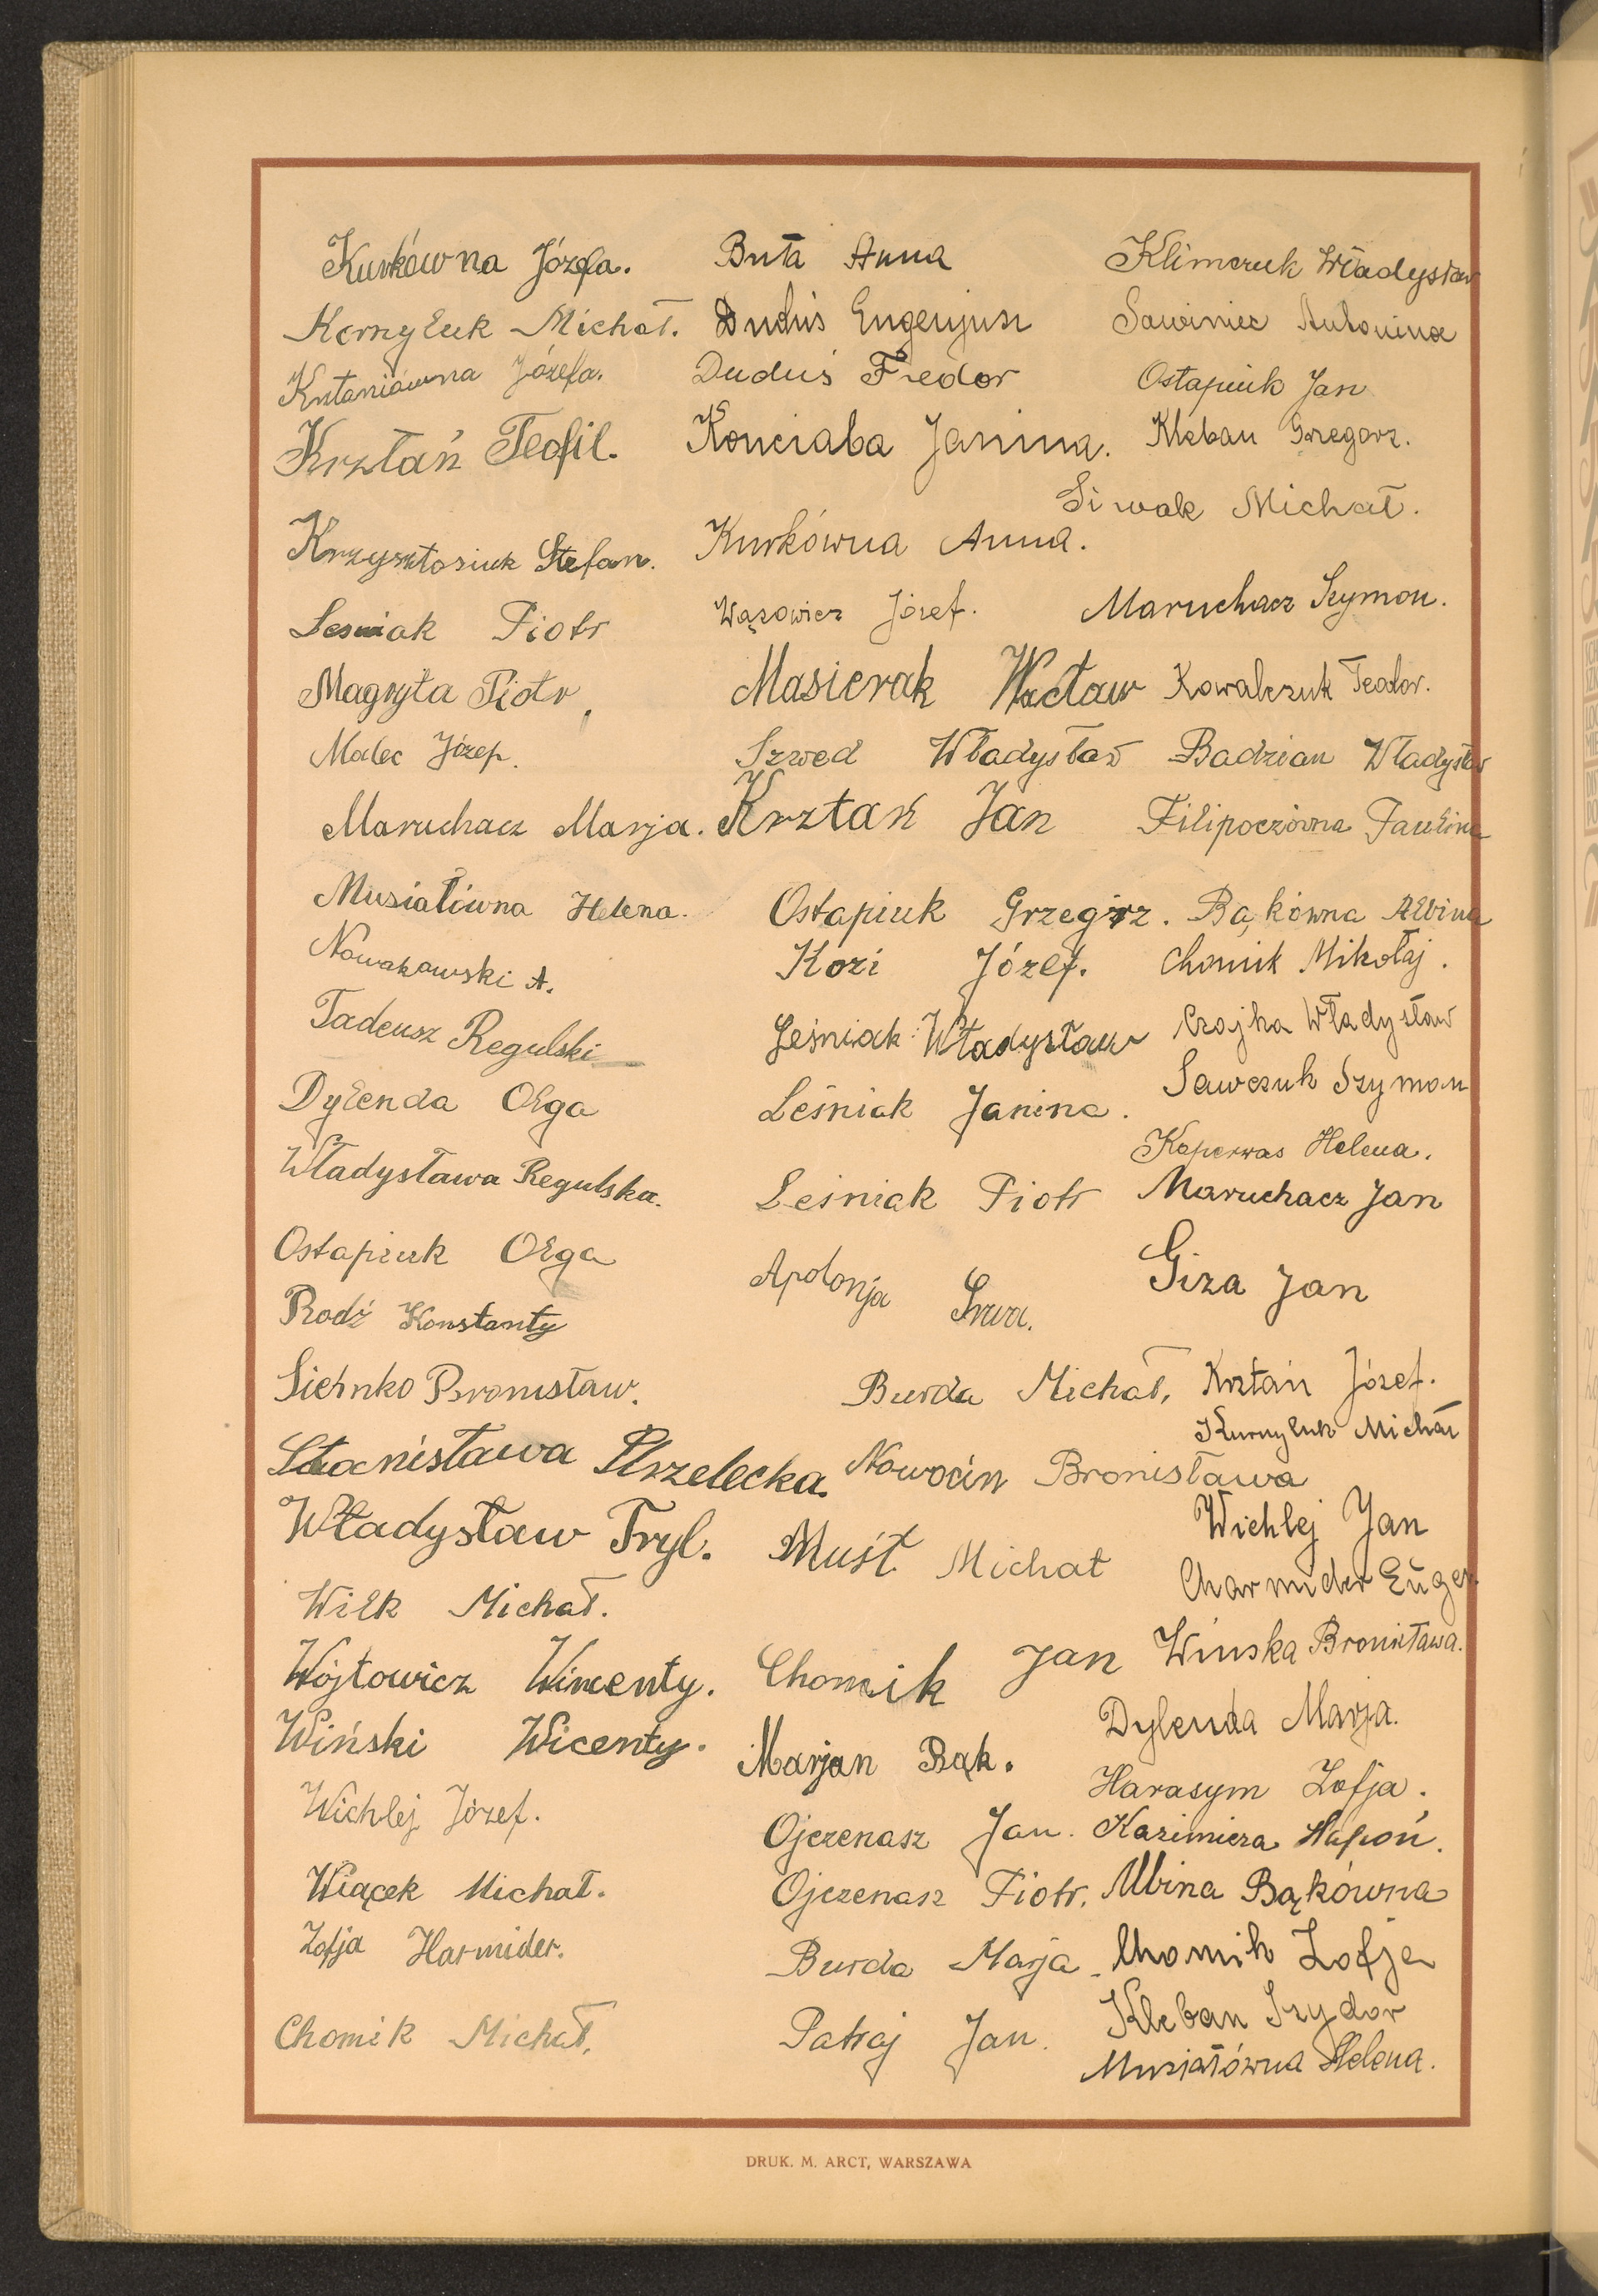 Kurkówna Józefa.
Kornyluk Michał.
Kutaniówna Józefa.
Krztań Teofil.
Krzysztosiuk Stefan.
Lesniak Piotr
Magryta Piotr
Malec Józep.
Maruchacz Marja.
Musiałówna Helena.
Nowakowski A.
Tadeusz Regulski
Dylenda Olga
Władysława Regulska.
Ostapiuk Olga
Rodź Konstanty
Siehnko Bronisław.
Stanisława Strzelecka.
Władysław Tryl.
Wilk Michał.
Wójtowicz Wincenty.
Wiński Wicenty.
Wichlej Józef.
Wiącek Michał.
Zofja Harmider.
Chomik Michał.
Buta Anna
Duduś Eugenjusz
Duduś Fredor
Konciaba Janina.
Kurkówna Anna.
Wązowicz Józef.
Masierak Wacław
Szwed Władysław
Krztań Jan
Ostapiuk Grzegorz.
Kozi Józef.
Leśniak Władysław
Leśniak Janina.
Leśniak Piotr
Apolonja
Burda Michał.
Nowocin Bronisława
Muśt Michał
Chomik Jan
Marjan Bąk.
Ojczenasz Jan.
Ojczenasz Piotr.
Burda Marja
Patraj Jan.
Klimczuk Władysław
Sawiniec Antonina
Ostapiuk Jan
Kleban Grzegorz.
Siwak Michał.
Maruchacz Szymon.
Kowalczuk Teodor.
Badzian Władysław
Filipoczówna Paulina
Bąkówna Albina
Chomik Mikołaj.
Czajka Władysław
Sawczuk Szymon
Kaperwas Helena.
Maruchacz Jan
Giza Jan
Krztań Józef.
Kurnyluk Michał
Wichlej Jan
Charmider Eugen.
Wińska Bronisława.
Dylenda Marja.
Harasym Zofja.
Kazimiera Hapoń.
Albina Bąkówna
Chomik Zofja
Kleban Izydor
Musiałówna Helena.
DRUK. M. ARCT, WARSZAWA